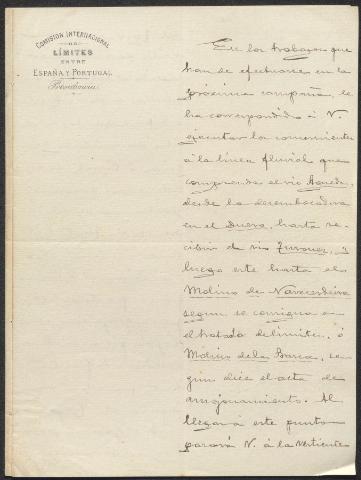 COMISIÓN INTERNACIONAL
DE
LÍMITES
ENTRE
ESPAÑA Y PORTUGAL.
Presidencia
En los trabajos que
han de efectuarse en la
próxima campaña, le
ha correspondido á V.
ejecutar los concernientes
á la línea fluvial que
comprende el río Agueda,
desde la desembocadura
en el Duero, hasta re-
cibir el río Turones, y
luego este hasta el
Molino de Navacerdeira
segun se consigna en
el tratado de límites, ó
Molino de la Barca, se-
gun dice el acta de
amojonamiento. Al
llegar á este punto
pasará V. á la vertiente